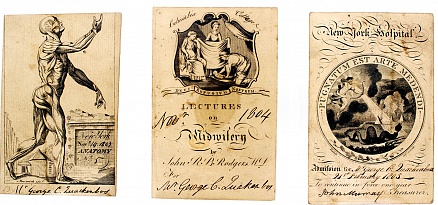 New York
Nov 1803
ANATOMY
Mr George C. Quackenbos
Columbia College
LECTURES
on
Midwifery
by
John R. B. Rodgers M.D.
For
Mr. George C. Quackenbos
Nov 1804
New York Hospital
PUGNATUM EST ARTE MEDENDI
Admission Mr George C. Quackenbos
February 1805
To continue in force one year
John Murray Treasurer